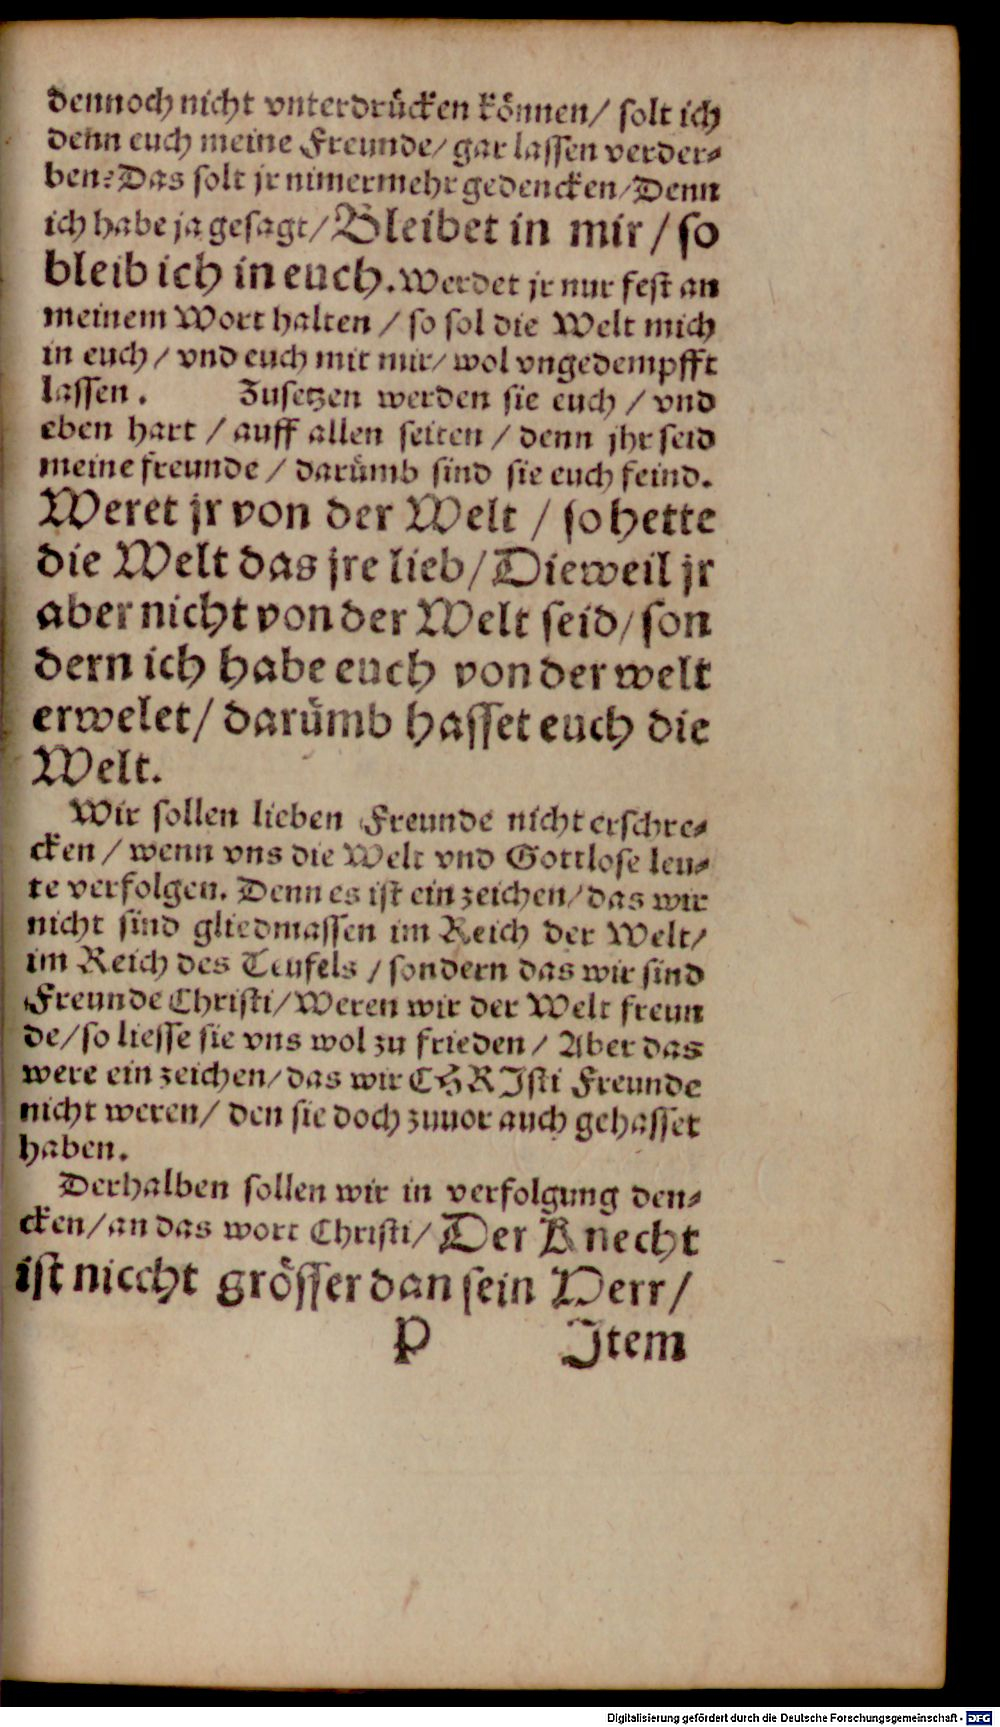 dennoch nicht vnterdrücken können/ solt ich
denn euch meine Freunde/ gar lassen verder-
ben? Das solt jr nimermehr gedencken/ Denn
ich habe ja gesagt/ Bleibet in mir / so
bleib ich in euch. Werdet jr nur fest an
meinem Wort halten / so sol die Welt mich
in euch / vnd euch mit mir/ wol vngedempfft
lassen. Zusetzen werden sie euch / vnd
eben hart / auff allen seiten / denn jhr seid
meine freunde / darümb sind sie euch feind.
Weret jr von der Welt / so hette
die Welt das jre lieb/ Dieweil jr
aber nicht von der Welt seid/ son
dern ich habe euch von der welt
erwelet/ darümb hasset euch die
Welt.
Wir sollen lieben Freunde nicht erschre-
cken / wenn vns die Welt vnd Gottlose leu-
te verfolgen. Denn es ist ein zeichen/ das wir
nicht sind gliedmassen im Reich der Welt/
im Reich des Teufels / sondern das wir sind
Freunde Christi/ Weren wir der Welt freun
de/ so liesse sie vns wol zu frieden / Aber das
were ein zeichen/ das wir CHRIsti Freunde
nicht weren/ den sie doch zuuor auch gehasset
haben.
Derhalben sollen wir in verfolgung den-
cken/ an das wort Christi/ Der Knecht
ist niccht grösser dan sein Herr/
P Item
Digitalisierung gefördert durch die Deutsche Forschungsgemeinschaft - DFG